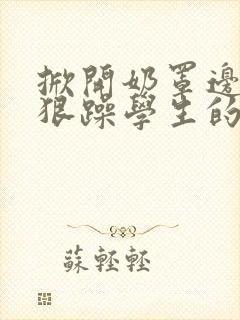 掀開奶罩邊
狠躁學生的
蘇輕輕